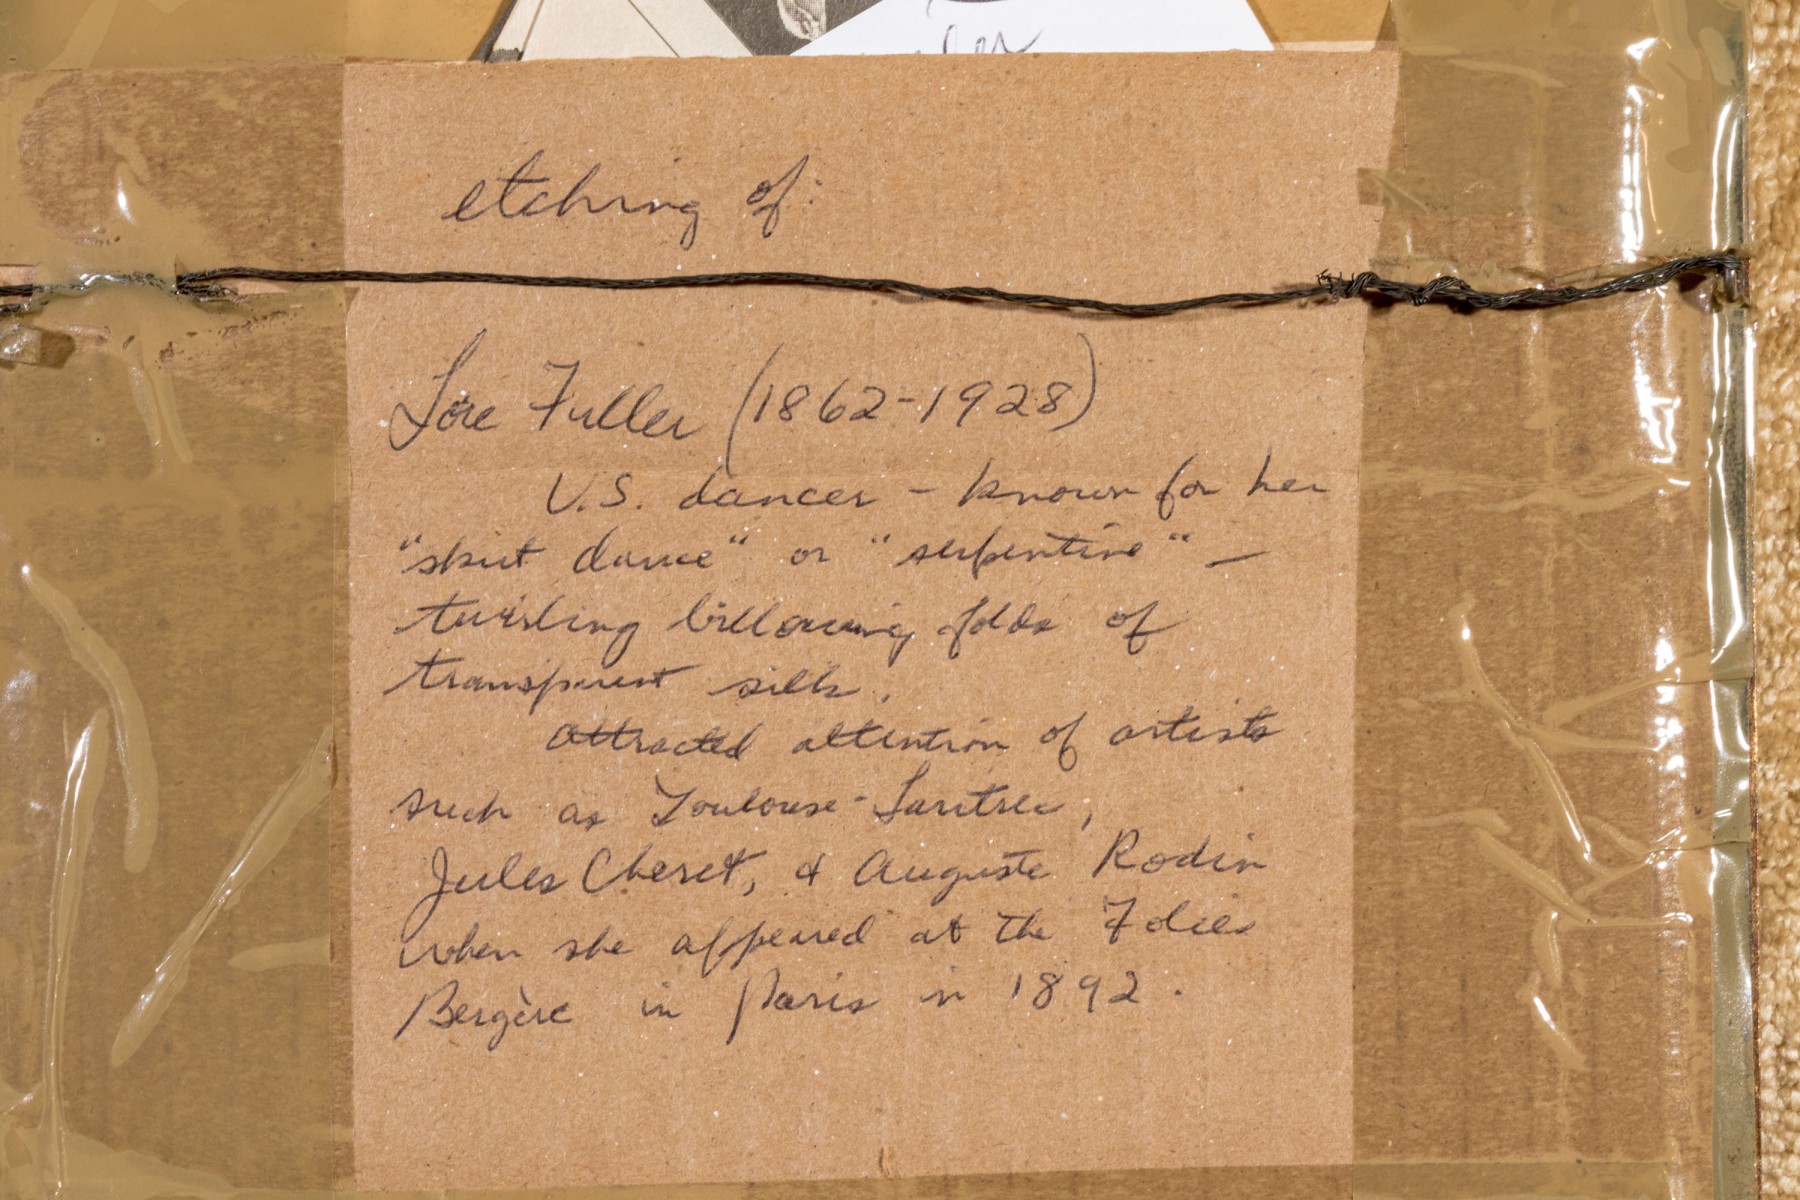 etching of:
Loïe Fuller (1862-1928)
U.S. dancer - known for her
"skirt dance" or "serpentine" -
twirling billowing folds of
transparent silk.
attracted attention of artists
such as Toulouse-Lautrec,
Jules Cheret, & Auguste Rodin
when she appeared at the Folies
Bergère in Paris in 1892.